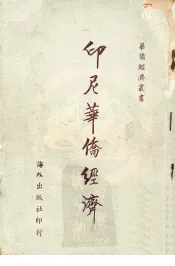 華僑經濟叢書
印尼華僑經濟
海外出版社印行